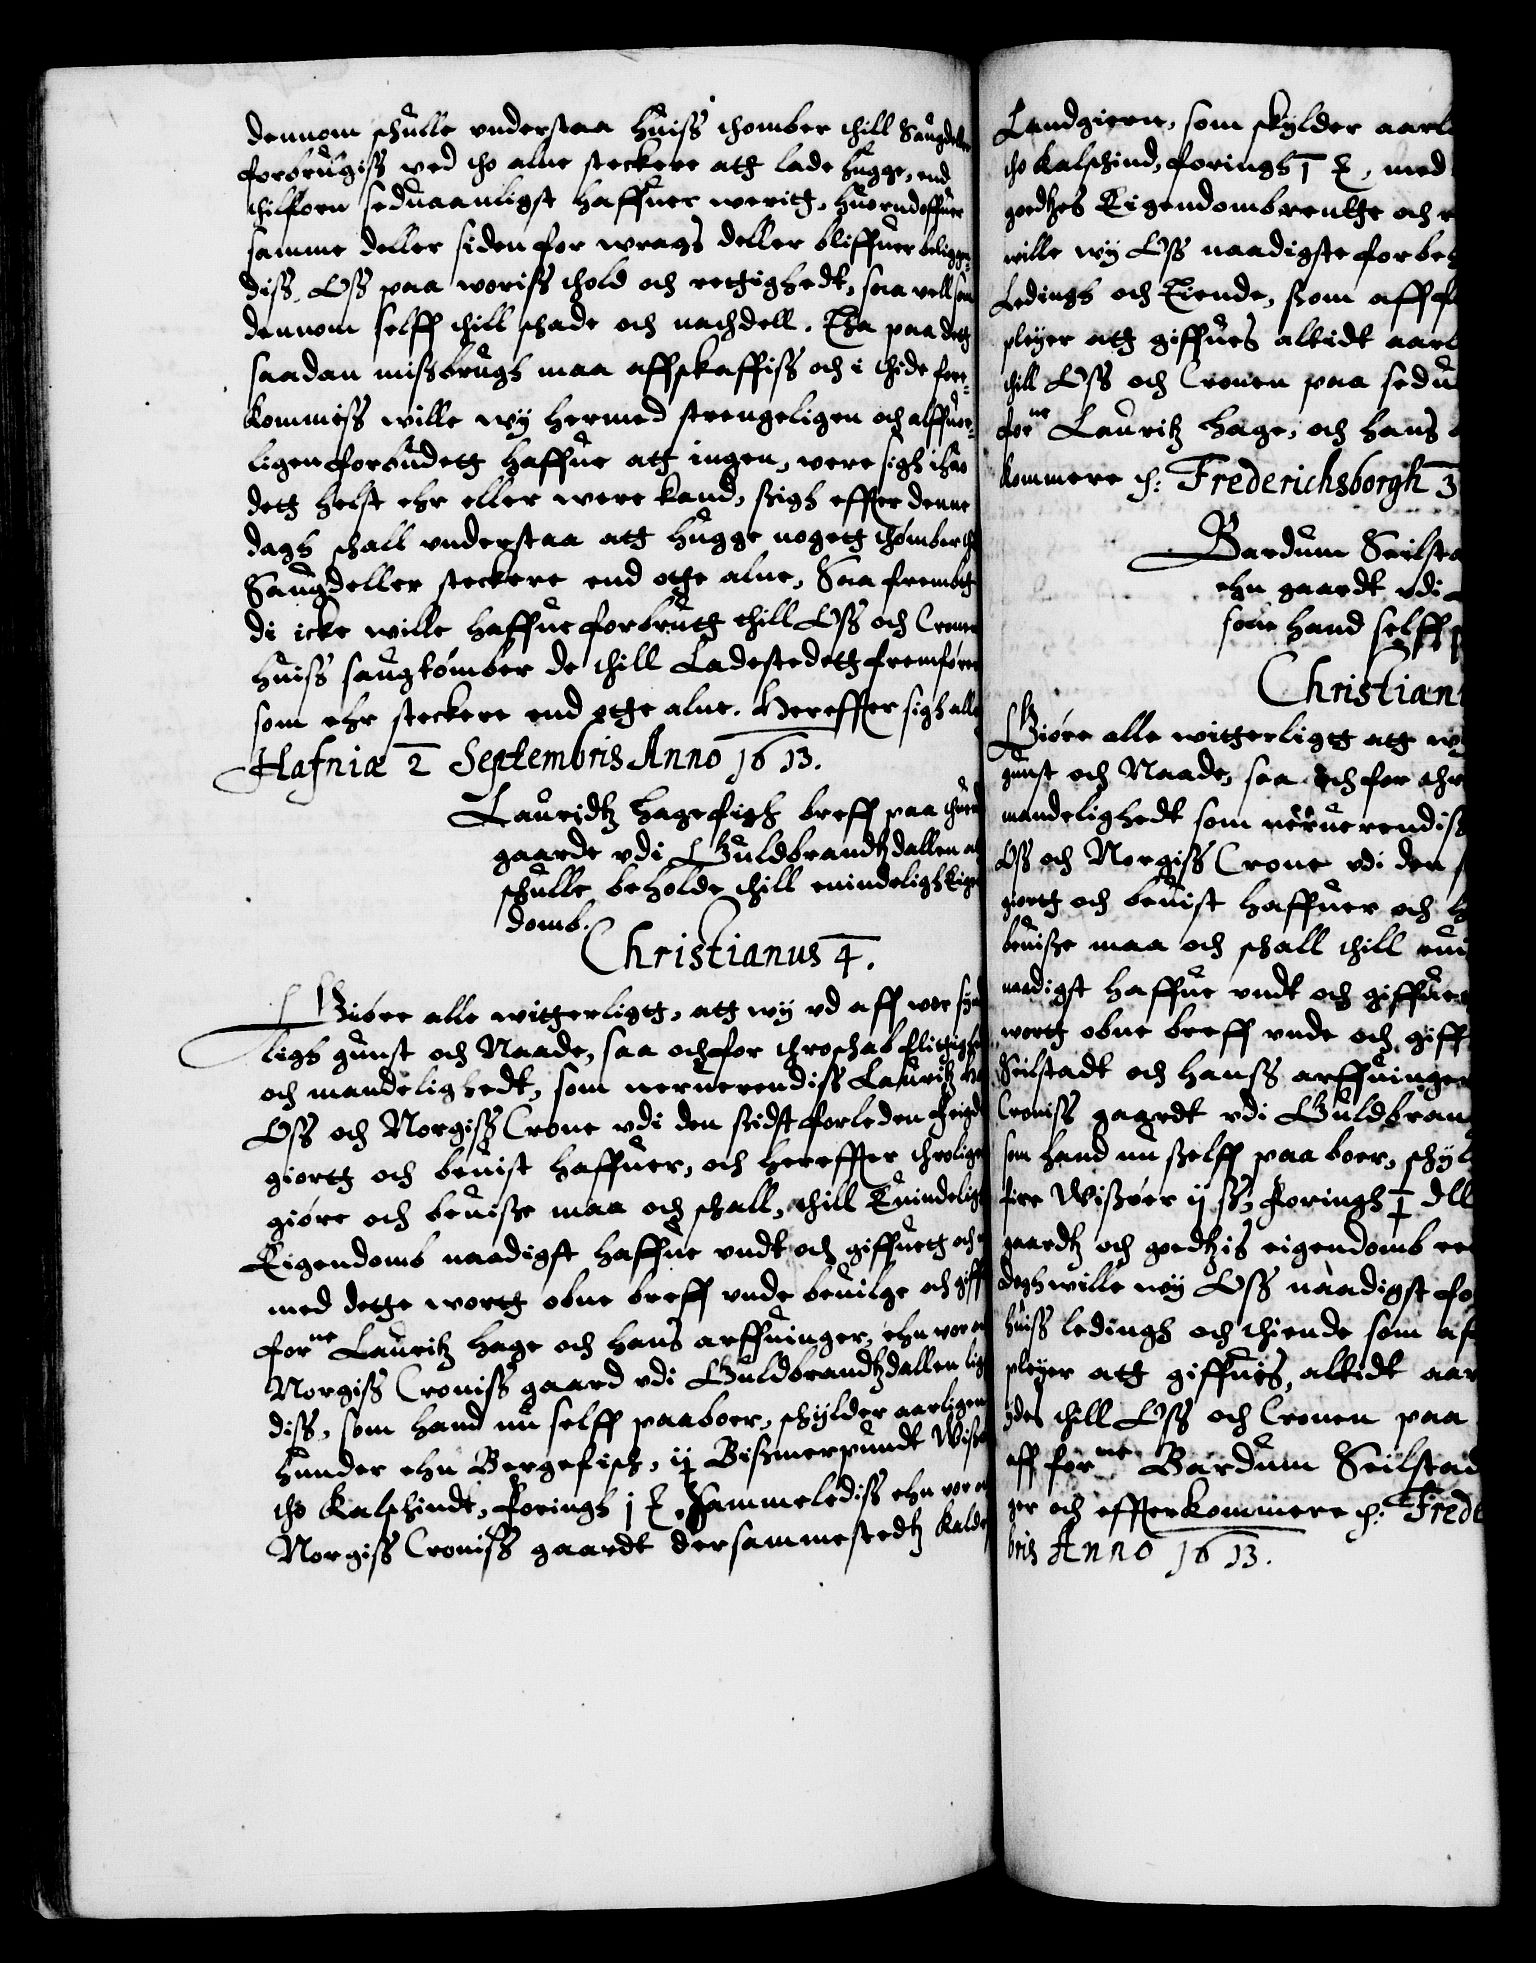 dennom schulle understaa huiss thømber thill Saugdeller
forbrugiss ved tho alne steckere att lade hugge, end
thilforn seduaanligst haffuer weritt, huorudoffuer
samme deller siden for wrags deller bliffuer beliggen-
diss, Oss paa woriss thold och rettighedt, saa vell som
dennom selff thill schade och nachdell. Tha paa dett
saadan missbrugh maa affskaffiss och i thide fore-
kommiss wille wy hermed strengeligen och alffuor-
ligen forbudett haffue att ingen, were sigh ihuo
dett helst ehr eller were kand, sigh effter denne
dagh schall understaa att hugge nogett thømber
Saugdeller steckere end otte alne, Saa frembt
di icke wille haffue forbrutt thill Oss och Cronen
huiss saugtømber de thill Ladestedett fremføre
som ehr steckere end otte alne. Hereffter sigh alle
Hafniæ 2 Septembris Anno 1613.
Lauridtz Hage figh breff paa thuende
gaarde udi Guldbrandtzdallen
schulle beholde thill euindeligh Eigen
domb.
Christianus 4.
Giøre alle witterligtt, att wy ud aff wor syn
ligh gunst och Naade, saa och for throschab flittighe
och mandelighedt, som neruerendiss Lauritz Ha
Oss och Norgiss Crone udi den sidst forleden Feigde
giortt och beuist haffuer, och hereffter throlige
giøre och beuisse maa och schall, thill Euindelig
Eigendomb naadigst haffue undt och giffuett och
med dette wortt obne breff unde beuilge och giff
forne Lauritz Hage och hans arffuinger, ehn wor
Norgiss Croniss gaard udi Guldbrandtzdallen lig
diss, som hand nu selff paaboer, schylder aarligen
hunder ehn Bergefisch, ij Bissmerpundt
tho Kalschindt, foringh j
Sammelediss ehn wor
Norgiss Croniss gaardt dersammestedtz kaldes
Landgiern, som skylder aarl
tho Kalschind, foringh 1 med
goedtzes Eigendombrentthe och
wille wy Oss naadigste forbe
Ledingh och Tiende, som aff
pleyer att giffues altidt aarl
thill Oss och Cronen paa sedu
forne Lauritz Hage, och hans
kommere p: Frederichsborgh 3
Bardum Seilsta
ehn gaardt udi
som hand selff
Christian
Giøre alle witterligtt att wy
gunst och Naade, saa och for thr
mandelighedt som neruerendiss
Oss och Norgiss Crone udi den
giortt och beuist haffuer och h
beuisse maa och schall thill eui
naadigst haffue undt och giffue
wortt obne breff unde och giff
Seilstadt och hanss arffuinger
Croniss gaardt udi Guldbran
som hand nu selff paa boer, schyl
fire Wissøer ij
foringh
gaardtz och goedtzis eigendomb
dogh wille wy Oss naadigst fo
huiss ledingh och thiende som af
pleyer att giffuis, altidt aar
ydes thill Oss och Cronen paa
aff forne Bardum Seilstad
ger och effterkommere p: Frede
bris Anno 1613.